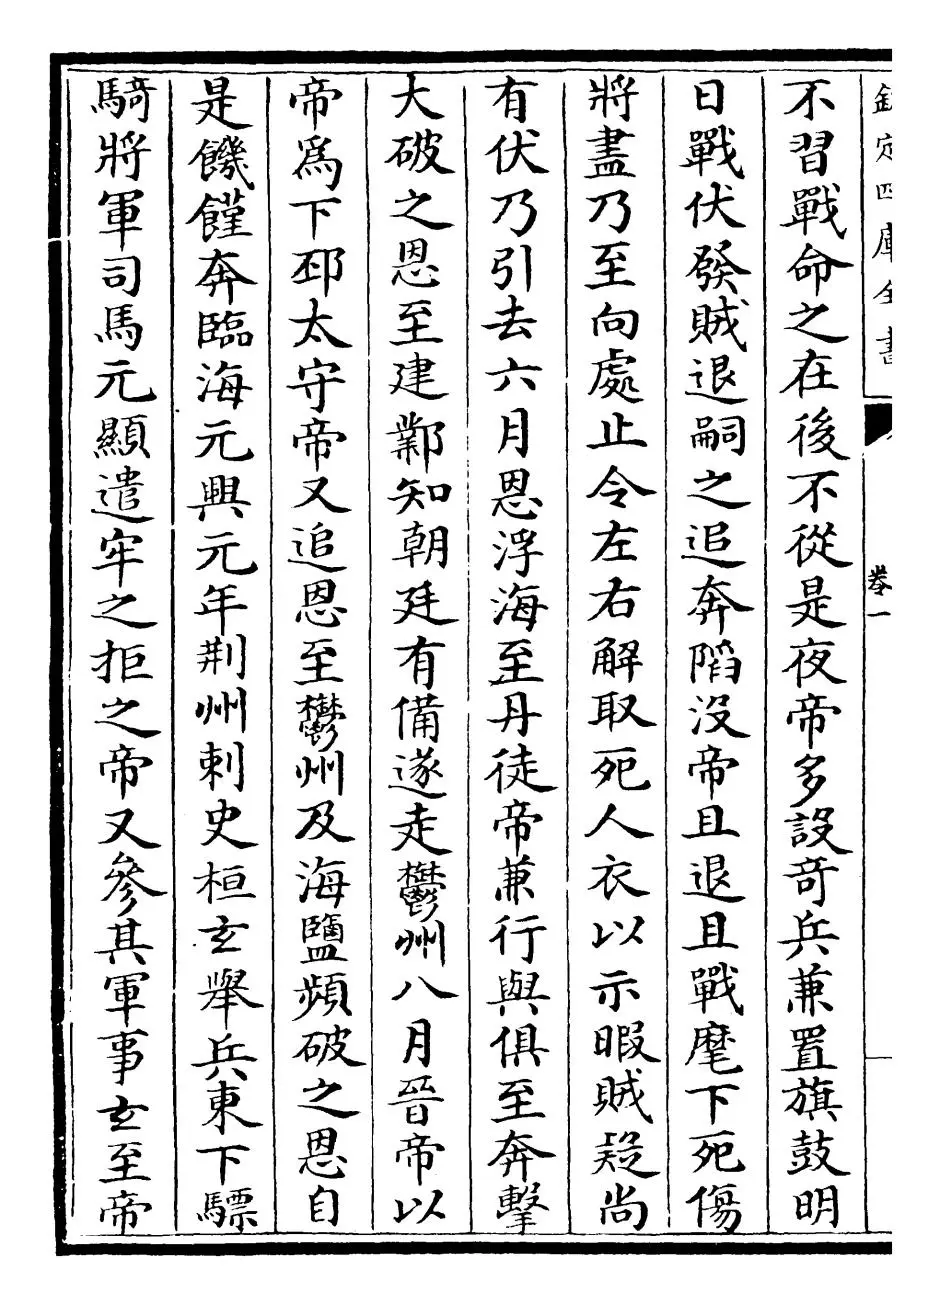 欽定四庫全書 卷一
不習戰命之在後不從是夜帝多設奇兵兼置旗鼓明
日戰伏發賊退嗣之追奔陷沒帝且退且戰麾下死傷
將盡乃至向處止令左右解取死人衣以示暇賊疑尚
有伏乃引去六月恩浮海至丹徒帝兼行與俱至奔擊
大破之恩至建鄴知朝廷有備遂走鬱州八月晉帝以
帝爲下邳太守帝又追恩至鬱州及海鹽頻破之恩自
是饑饉奔臨海元興元年荆州刺史桓玄舉兵東下驃
騎將軍司馬元顯遣牢之拒之帝又參其軍事玄至帝